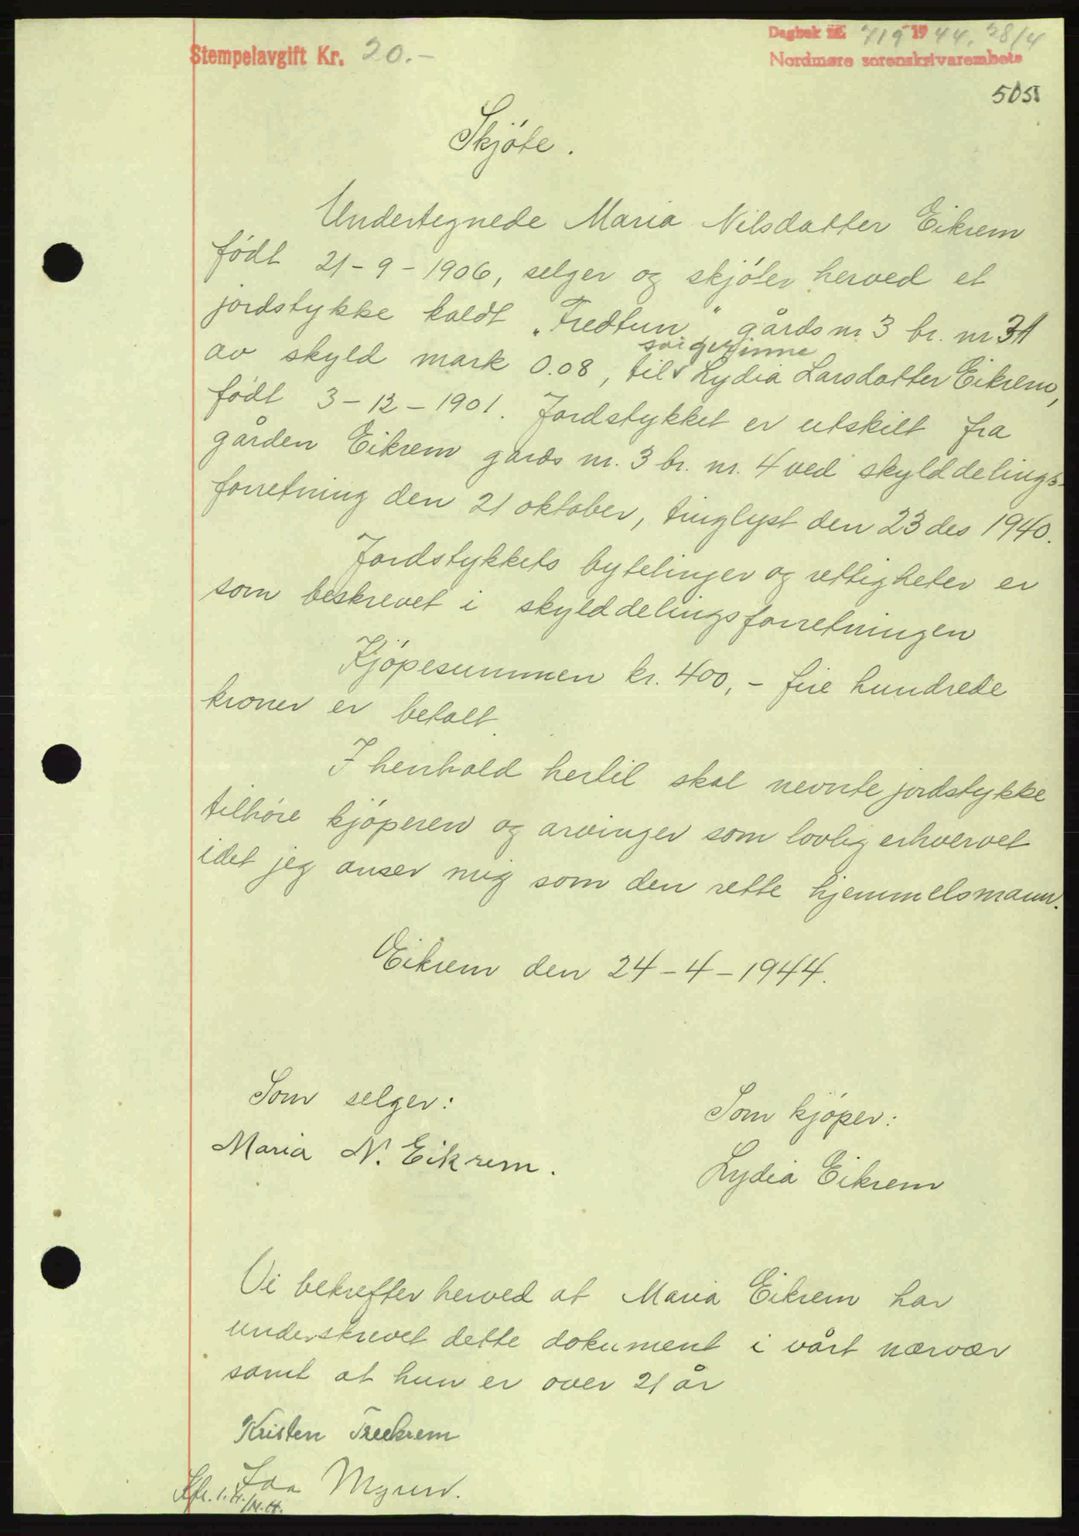 Stempelavgift Kr. 20.-
Dagbok nr. 719 1944, 28/4
Nordmøre sorenskrivarembete
505
Skjøte.
Undertegnede Maria Nilsdatter Eikrem
født 21-9-1906, selger og skjøter herved et
jordstykke kaldt „Fredtun" gårds nr 3 br. nr 31
av skyld mark 0.08, til Lydia Larsdatter Eikrem,
født 3-12-1901. Jordstykket er utskilt fra
gården Eikrem gards nr. 3 br. nr. 4 ved skylddelings-
forretning den 21 oktober, tinglyst den 23 des 1940.
Jordstykkets bytelinjer og rettigheter er
som beskrevet i skylddelingsforretningen
Kjøpesummen kr. 400,- fire hundrede
kroner er betalt.
I henhold hertil skal nevnte jordstykke
tilhøre kjøperen og arvinger som lovlig erhvervet
idet jeg anser mig som den rette hjemmelsmann.
Eikrem den 24-4-1944.
Som selger:
Maria N. Eikrem.
Som kjøper:
Lydia Eikrem
Vi bekrefter herved at Maria Eikrem har
underskrevet dette dokument i vårt nærvær
samt at hun er over 21 år
Kristen Treekrem
Myren.